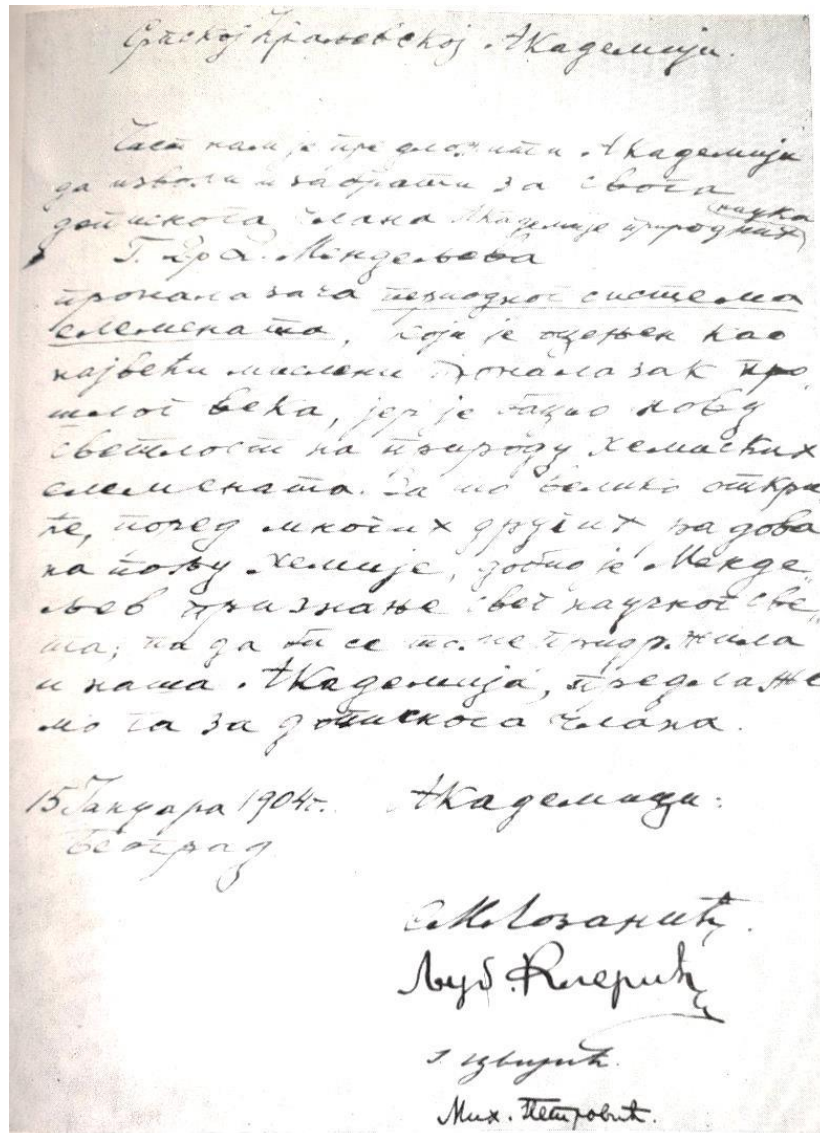 Српској Краљевској Академији.
Част нам је предложити Академији
да изволи изабрати за свога
дописнога члана Академије природних наука
Г. Дра Д. Мендељева
проналазача периодног система
елемената, који је оцењен као
највећи мислени проналазак про
шлог века, јер је бацио нову
светлост на природу хемиских
елемената. За то велико откри
ће, поред многих других радова
на пољу хемије, добио је Менде
љев признање свег научног све
та; па да би се томе придржила
и наша Академија, предлаже
мо га за дописнога члана.
15 Јануара 1904 г. Академици:
Београд
С. М. Лозанић
Љуб. Клерић
Ј. Цвијић.
Мих. Петровић.